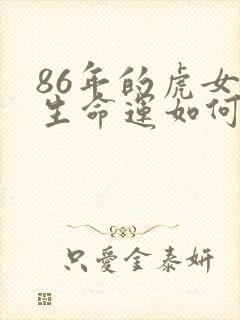 86年的虎女
生命運如何
只愛金泰妍